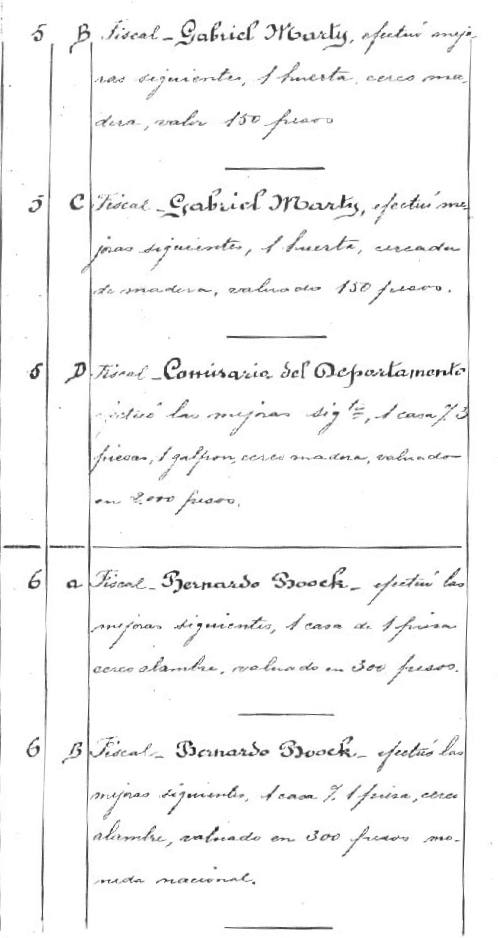 5 B Fiscal - Gabriel Marty, efectuó mejo-
ras siguientes, 1 huerta, cerco ma-
dera, valor 150 pesos
5 C Fiscal - Gabriel Marty, efectuó me-
joras siguientes, 1 huerta, cercada
de madera, valuado 150 pesos.
5 D Fiscal - Comisaria del Departamento
efectuó las mejoras sigtes, 1 casa % 3
piesas, 1 galpon, cerco madera, valuado
en 2.000 pesos.
6 a Fiscal - Bernardo Boock - efectuó las
mejoras siguientes, 1 casa de 1 piesa
cerco alambre, valuado en 300 pesos.
6 B Fiscal - Bernardo Boock - efectuó las
mejoras siguientes, 1 casa % 1 piesa, cerco
alambre, valuado en 300 pesos mo-
neda nacional.